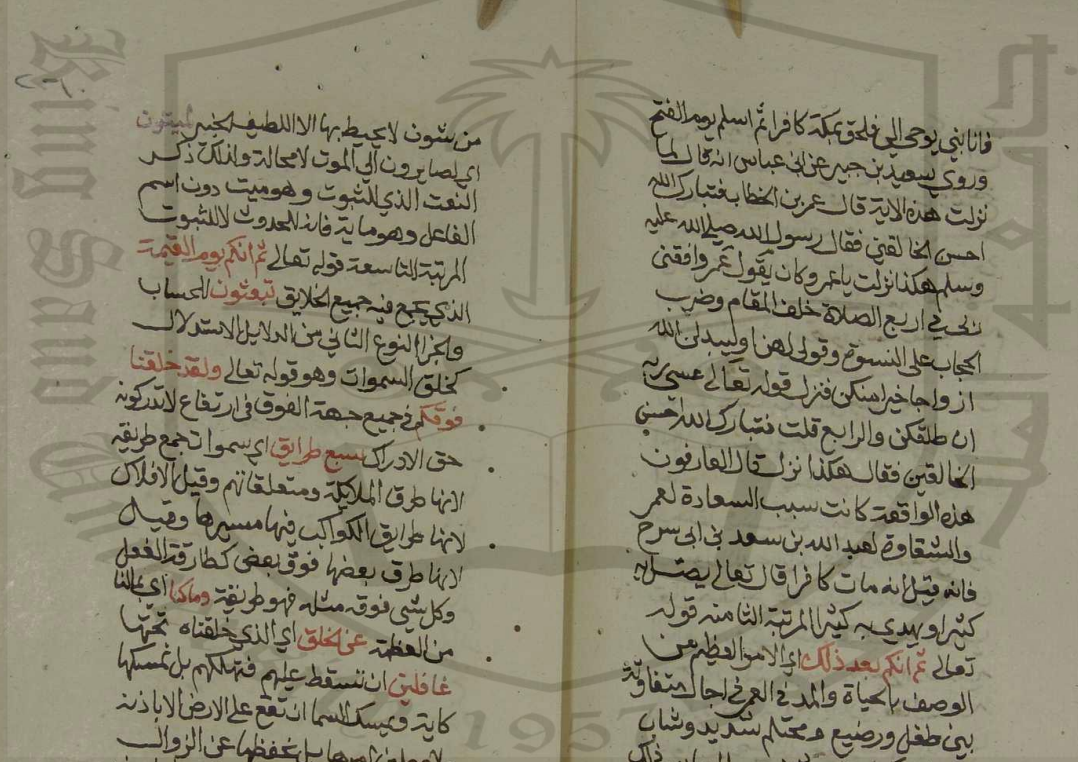 فانا نبي يوحى الي فلحق بمكة كافرا ثم اسلم يوم الفتح
وروي سعيد بن جبير عن ابن عباس انه قال لما
نزلت هذه الاية قال عمر بن الخطاب فتبارك الله
احسن الخالقين فقال رسول الله صلى الله عليه
وسلم هكذا نزلت يا عمر وكان يقول عمر وافقني
ربي في اربع الصلاة خلف المقام وضرب
الحجاب على النسوة وقولي لهن او ليبدلن الله
ازواجا خيرا منكن فنزل قوله تعالى عسى ربه
ان طلقكن والرابع قلت فتبارك الله احسن
الخالقين فقال هكذا نزل قال العارفون
هذه الواقعة كانت سبب السعادة لعمر
والشقاوة لعبد الله بن سعد بن ابي سرح
فانه قيل انه مات كافرا قال تعالى يضل به
كثيرا ويهدي به كثيرا المرتبة الثامنة قوله
تعالى ثم انكم بعد ذلك اي الامر العظيم من
الوصف بالحياة والمد في العمر في اجال متفاوتة
بين طفل ورضيع ومحتلم شديد وشاب
من شون لا يحيط بها الا اللطيف الخبير لميتون
اي لصايرون الي الموت لا محالة ولذلك ذكر
النعت الذي للثبوت وهو ميت دون اسم
الفاعل وهو مايت فانه للحدوث لا للثبوت
المرتبة التاسعة قوله تعالى ثم انكم يوم القيمة
الذي يجمع فيه جميع الخلايق تبعثون للحساب
والجزا النوع الثاني من الدلايل الاستدلال
بخلق السموات وهو قوله تعالى ولقد خلقنا
فوقكم في جميع جهة الفوق في ارتفاع لا تدركونه
حق الادراك سبع طرايق اي سموات جمع طريقة
لانها طرق الملايكة ومتعلقاتهم وقيل الافلاك
لانها طرايق الكواكب فيها مسيرها وقيل
لانها طرق بعضها فوق بعض كطارقة النعل
وكل شي فوقه مثله فهو طريقة وما كنا اي بمالنا
من العظمة عن الخلق اي الذي خلقناه تحتها
غافلين ان تسقط عليهم فتهلكهم بل نمسكها
كاية ويمسك السما ان تقع على الارض الا باذنه
بل نحفظها عن الزوال
جامعة الملك
King Saud
1957